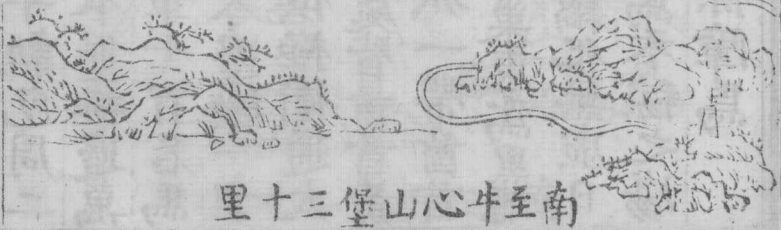 南至牛心山堡三十里